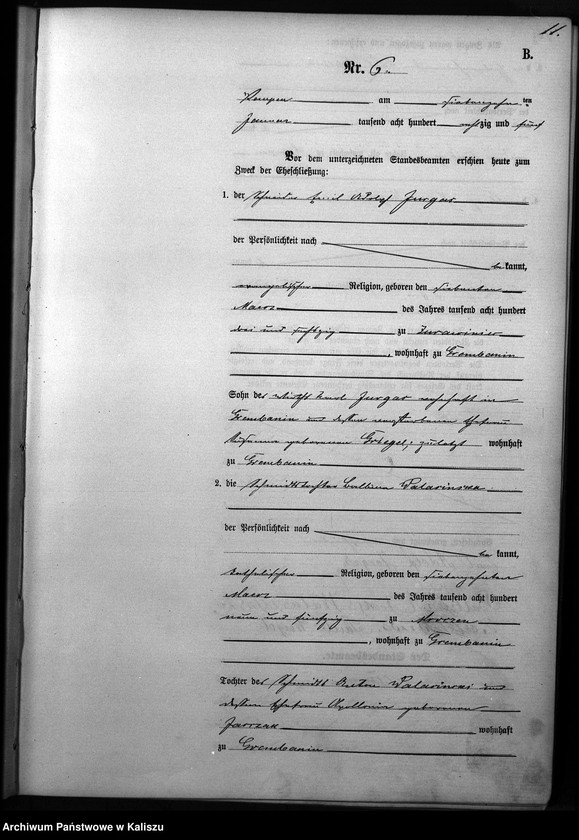 11.
B.
Nr. 6
Kempen am siebenzehn ten
Januar tausend acht hundert achtzig und fünf
Vor dem unterzeichneten Standesbeamten erschien heute zum
Zweck der Eheschließung:
1. der Schneider Emil Adolf Jurgas
der Persönlichkeit nach
be kannt,
evangelischer Religion, geboren den siebenten
Maerz des Jahres tausend acht hundert
drei und fünfzig zu
, wohnhaft zu Grembanin
Sohn des Jurgas wohnhaft in
Grembanin und dessen verstorbenen Ehefrau
Susanna geborenen zuletzt wohnhaft
zu Grembanin
2. die Schmidtstochter Balbina
der Persönlichkeit nach
be kannt,
katholischer Religion, geboren den siebenzehnten
Maerz des Jahres tausend acht hundert
neun und fünfzig zu
, wohnhaft zu Grembanin
Tochter des Schmidts Anton und
dessen Ehefrau Apollonia geborenen
wohnhaft
zu Grembanin
Archiwum Państwowe w Kaliszu